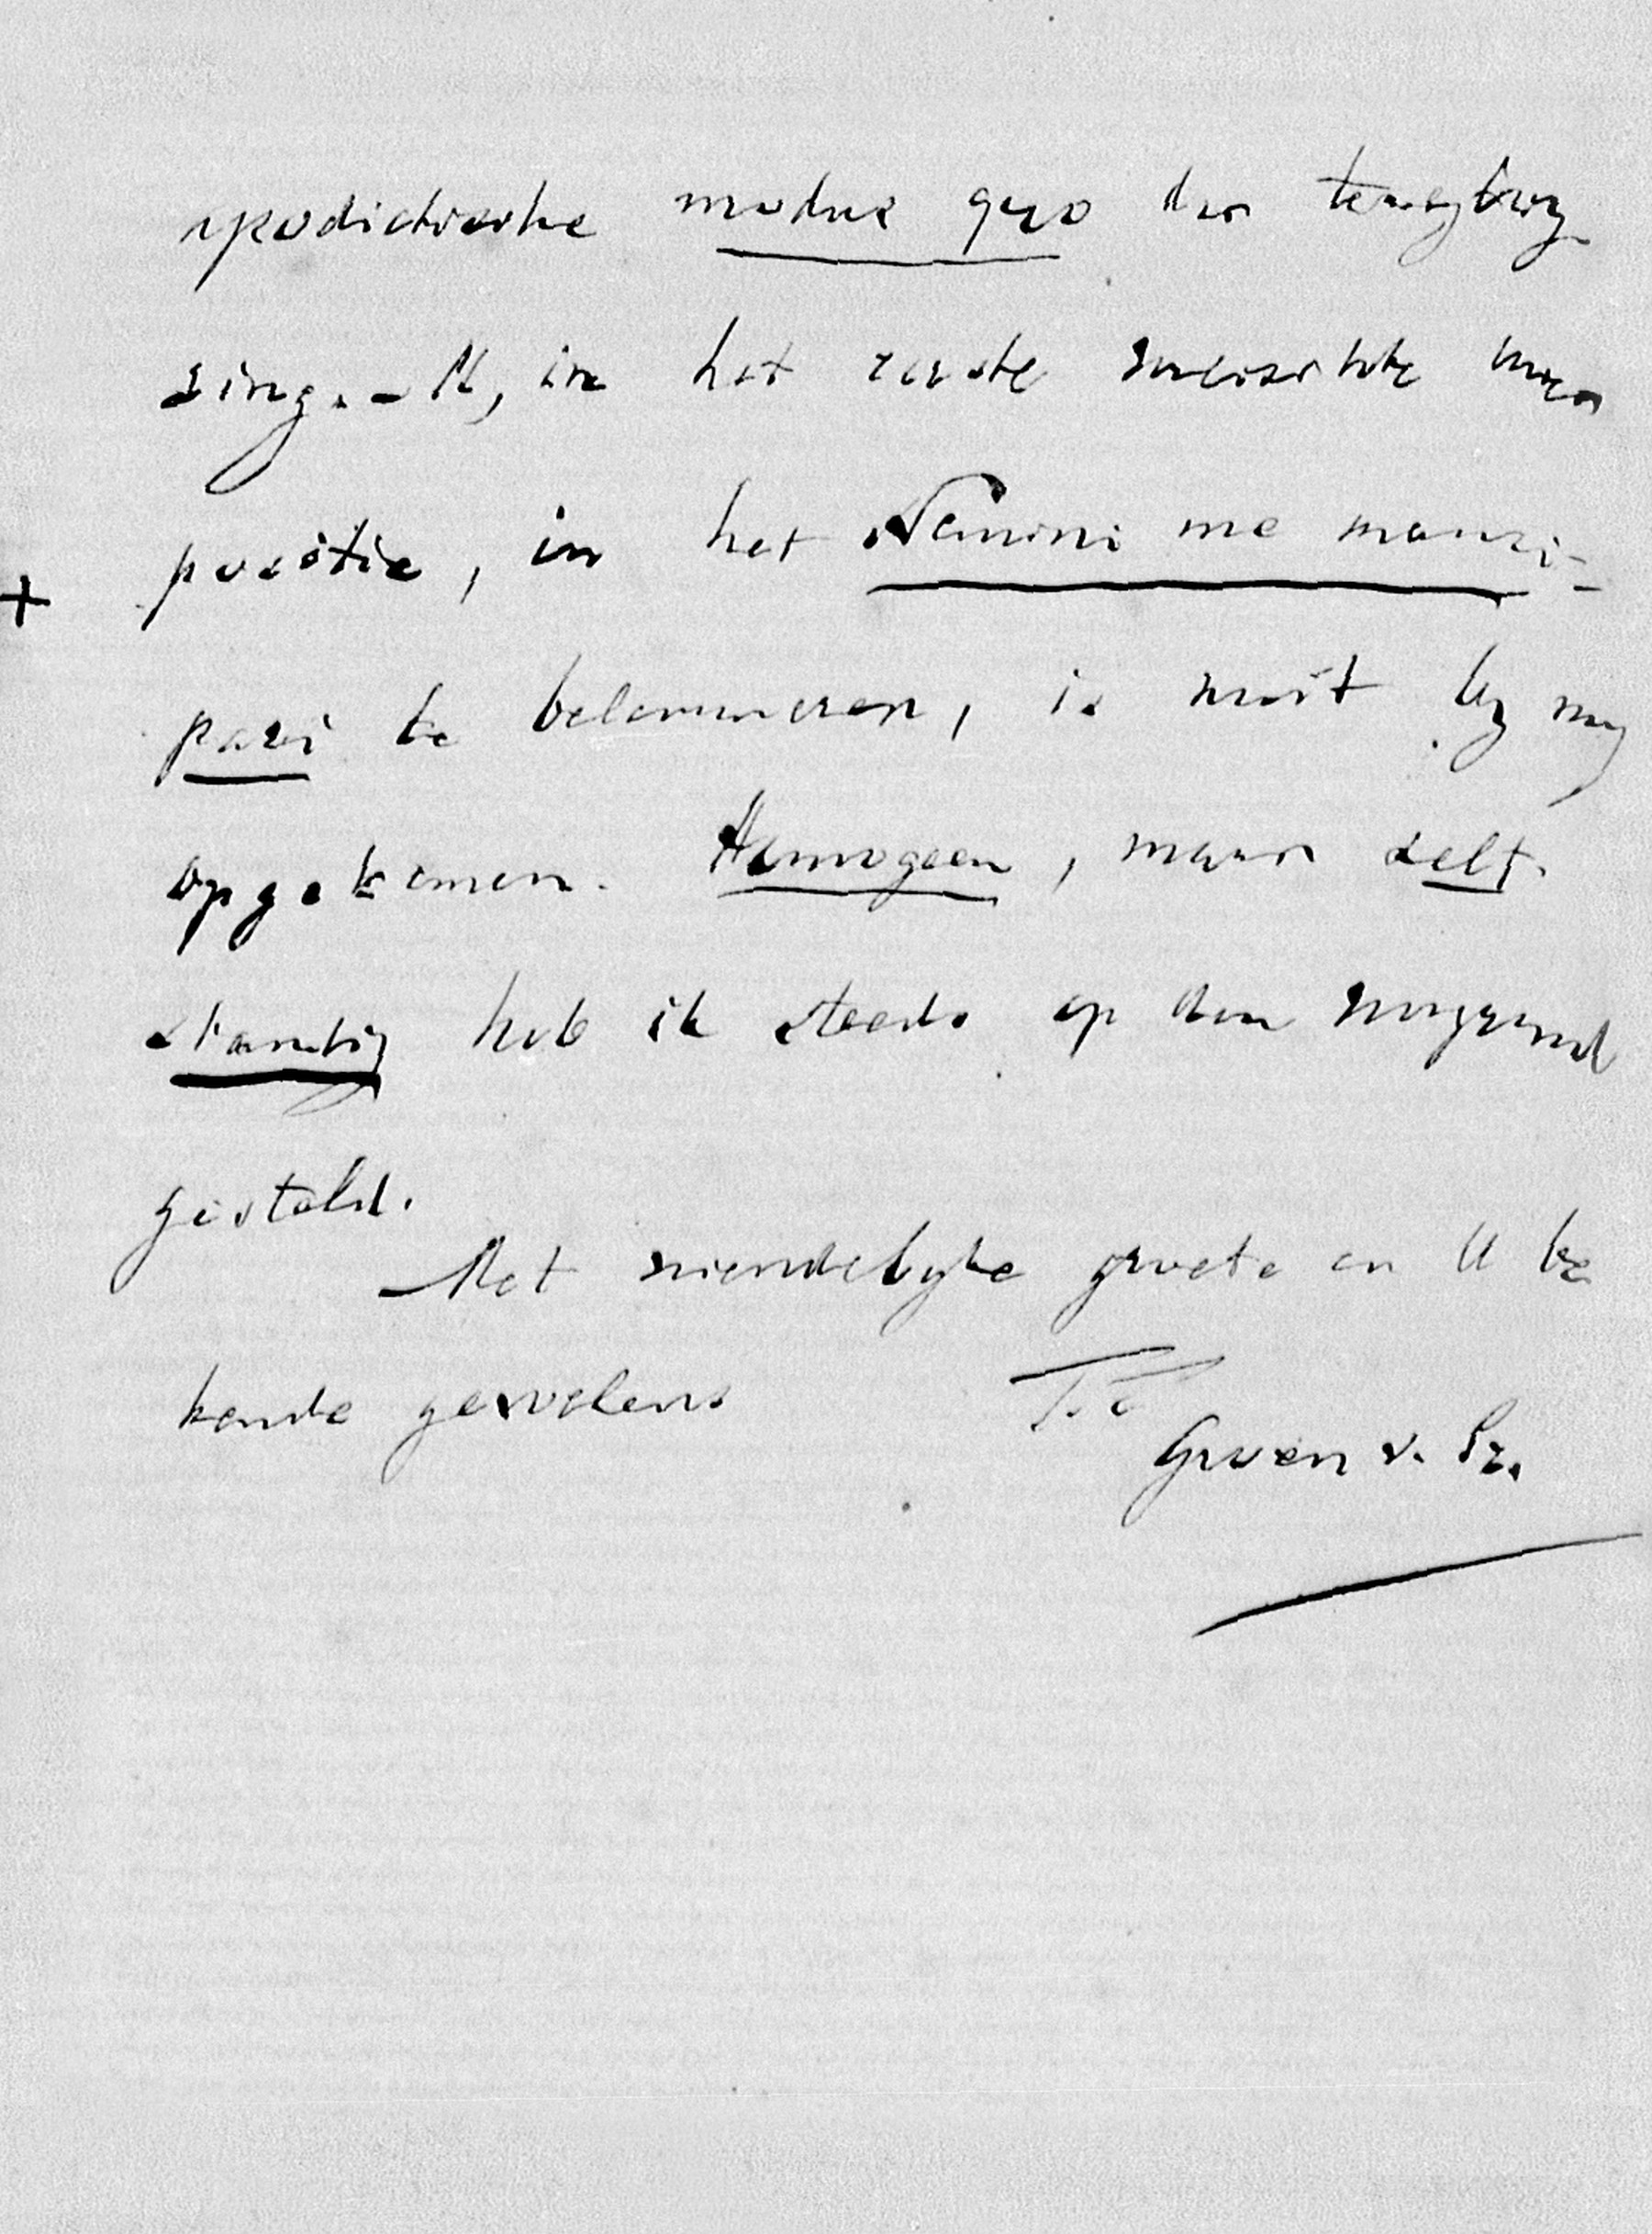 apodictische modus quo der terugbren
zing. - U, in het eerste vereischte uwer
positie, in het Nemini me manci-
pavi te belemmeren, is nooit by my
opgekomen. Homogeen, maar zelf-
standig heb ik steeds op den voorgrond
gesteld.
Met vriendelyke groete en U be
kende gevoelens
T.t.
Groen v. Pr.
+